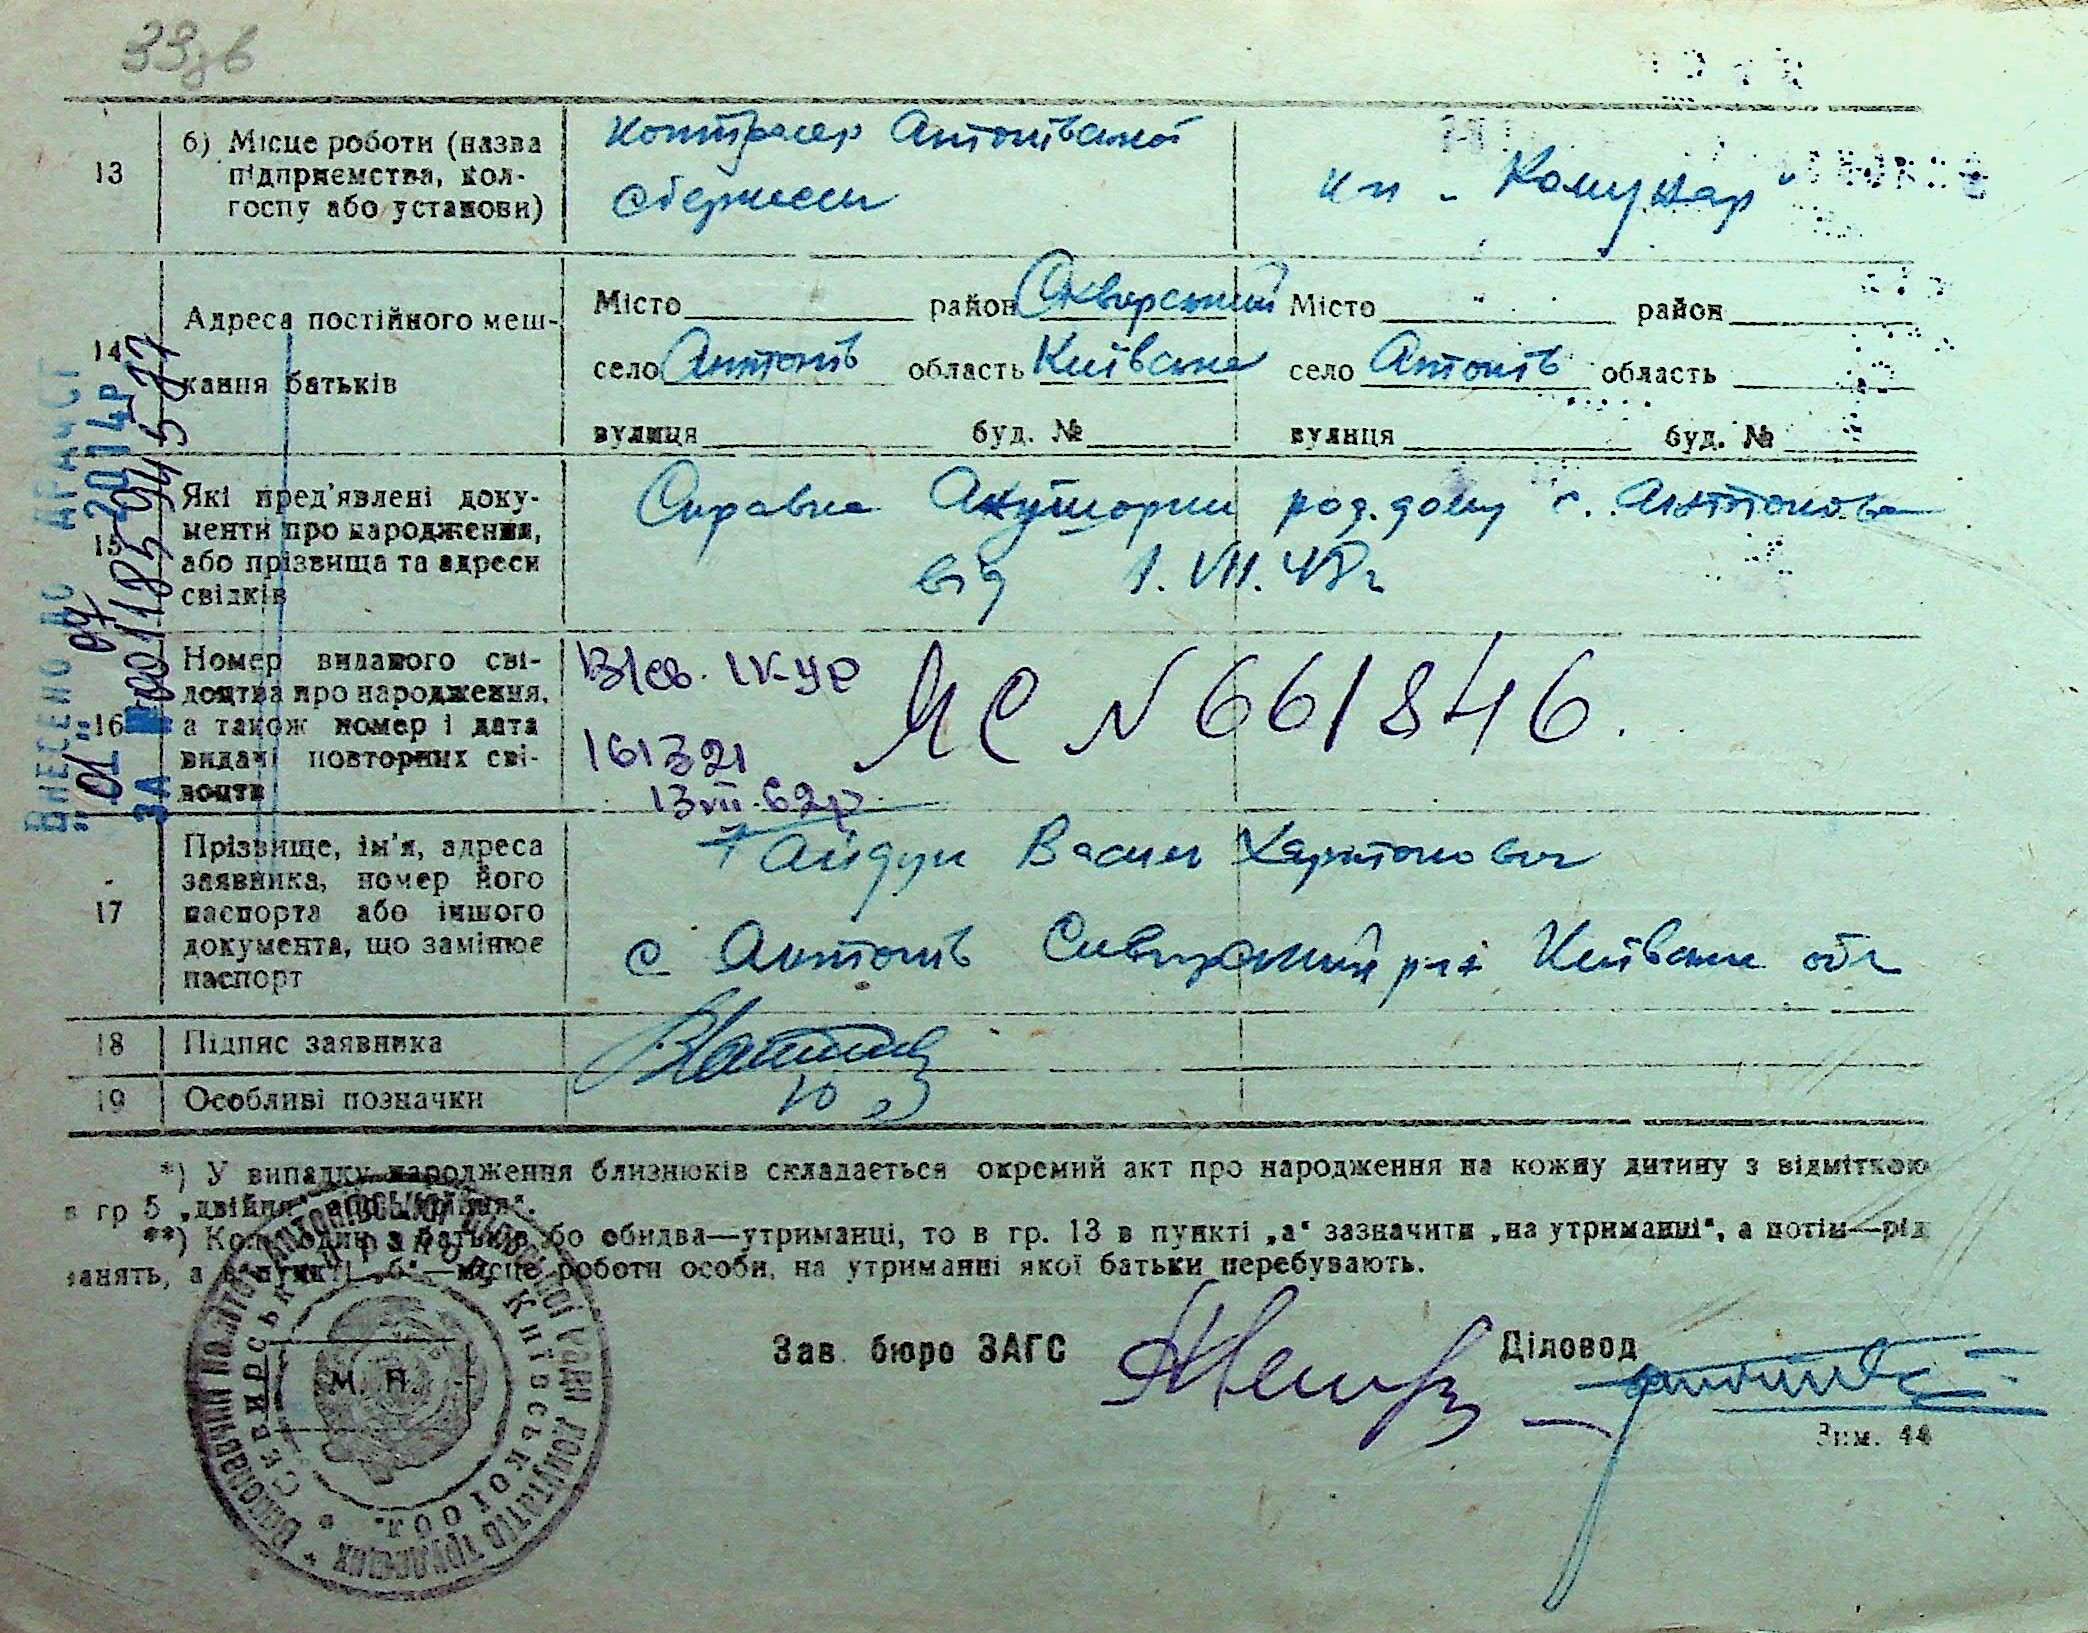 33зв
13
б) Місце роботи (назва
підприємства, кол-
госпу або установи)
контрасер Антонівської
сберкаси
кп - "Комунар"
14
Адреса постійного меш-
кання батьків
Місто район Сквирський
село Антонів область Київська
вулиця буд. №
Місто район
село Антонів область
вулиця буд. №
15
Які пред'явлені доку-
менти про народження,
або прізвища та адреси
свідків
Справка Акушорки род. дому с. Антонова
від 1.VII.48г
16
Номер виданого сві-
доцтва про народження,
а також номер і дата
видачі повторних сві-
доцтв
В/св. ІКУР
161321
13 VII. 62р.
ЯС N 661846.
17
Прізвище, ім'я, адреса
заявника, номер його
паспорта або іншого
документа, що замінює
паспорт
Гайдук Васил Харитонович
с Антонів Сквирський р-н Київськи обл
18
Підпис заявника
19
Особливі позначки
ВНЕСЕНО ДО ДРАЦСГ
"01" 07 2014р
ЗА № 001185094577
*) У випадку народження близнюків складається окремий акт про народження на кожну дитину з відміткою
в гр 5 „двійня" або „трійня".
**) Коли один з батьків бо обидва—утриманці, то в гр. 13 в пункті „а" зазначити „на утриманні", а потім—рід
занять, а в пункті „б"—місце роботи особи, на утриманні якої батьки перебувають.
М. П.
Зав. бюро ЗАГС
Діловод
Зам. 44
Виконавчий Антонівської сільської Ради депутатів трудящих
Сквирський район Київської